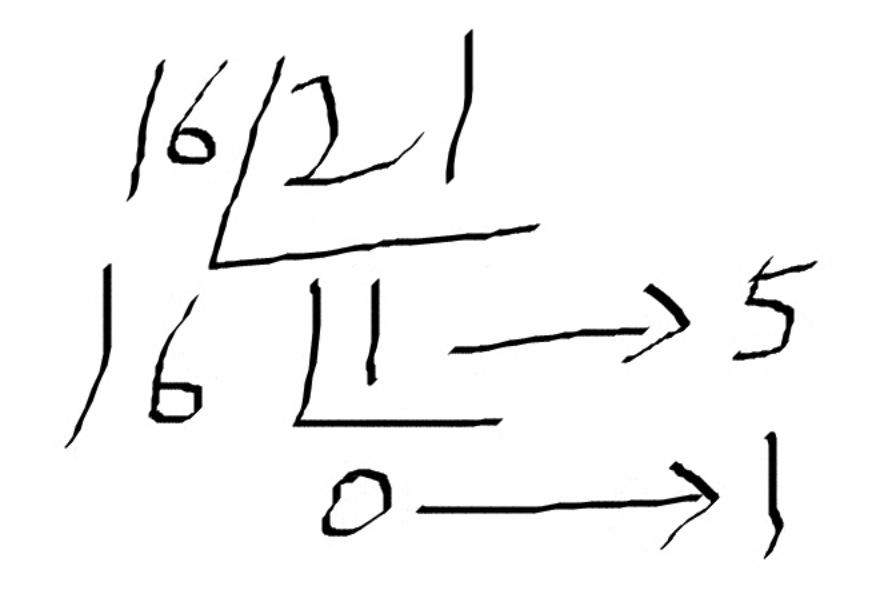 16 21
16 1 → 5
0 → 1